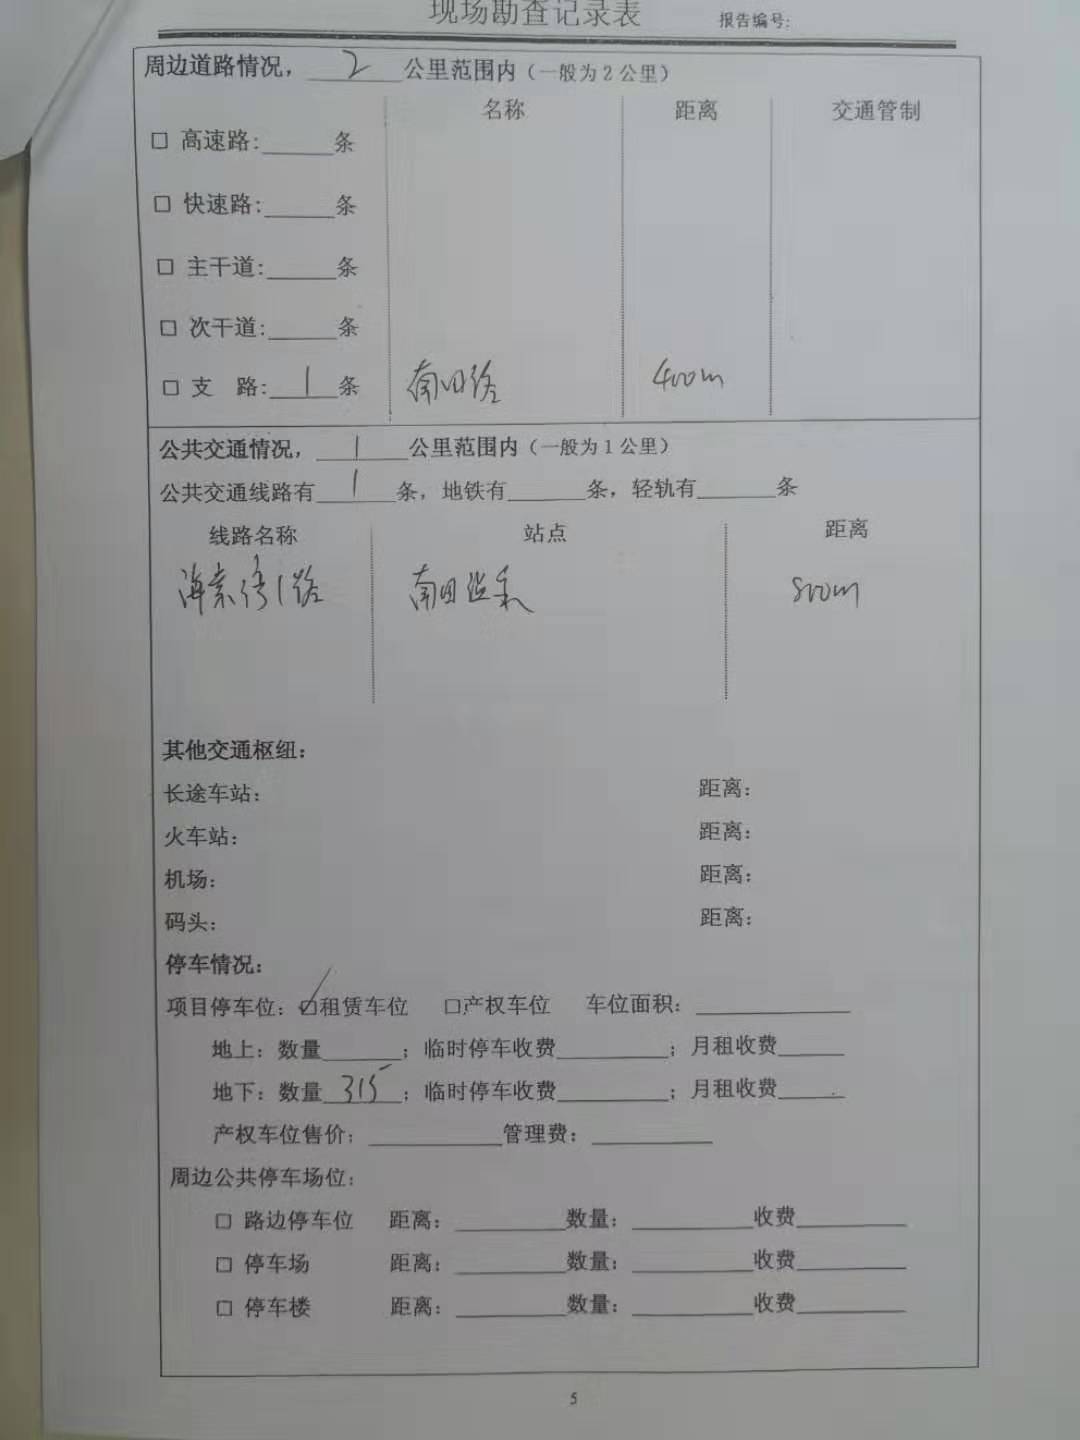 现场勘查记录表 报告编号:
周边道路情况，2公里范围内（一般为2公里）
名称 距离 交通管制
□ 高速路:______条
□ 快速路:______条
□ 主干道:______条
□ 次干道:______条
□ 支 路: 1 条 南田路 400m
公共交通情况，1公里范围内（一般为1公里）
公共交通线路有 1 条，地铁有______条，轻轨有______条
线路名称 站点 距离
1路 南田 800m
其他交通枢纽：
长途车站： 距离：
火车站： 距离：
机场： 距离：
码头： 距离：
停车情况：
项目停车位：☑租赁车位 □产权车位 车位面积：______
地上：数量______；临时停车收费______；月租收费______
地下：数量 315 ；临时停车收费______；月租收费______
产权车位售价：______管理费：______
周边公共停车场位：
□ 路边停车位 距离：______数量：______收费______
□ 停车场 距离：______数量：______收费______
□ 停车楼 距离：______数量：______收费______
5